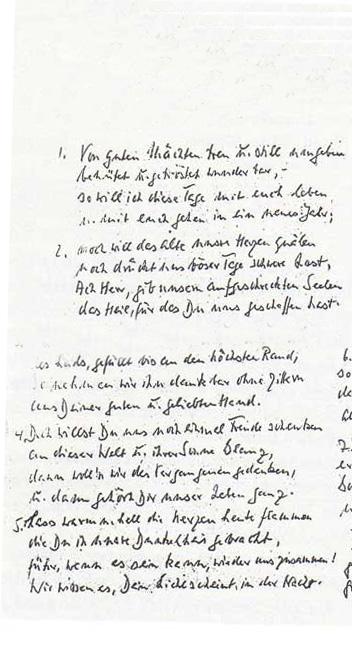 1. Von guten Mächten treu u. still umgeben
behütet u. getröstet wunderbar, –
so will ich diese Tage mit euch leben
u. mit euch gehen in ein neues Jahr;
2. noch will das alte unsre Herzen quälen
noch drückt uns böser Tage schwere Last,
Ach Herr, gib unsern aufgeschreckten Seelen
das Heil, für das Du uns geschaffen hast.
es Leids, gefüllt bis an den höchsten Rand,
so nehmen wir ihn dankbar ohne Zittern
aus Deiner guten u. geliebten Hand.
4. Doch willst Du uns noch einmal Freude schenken
an dieser Welt u. ihrer Sonne Glanz,
dann woll'n wir des Vergangenen gedenken,
u. dann gehört Dir unser Leben ganz.
5. Lass warm u. hell die Kerzen heute flammen
die Du in unsre Dunkelheit gebracht,
führ, wenn es sein kann, wieder uns zusammen!
Wir wissen es, Dein Licht scheint in der Nacht.
6.
so
de
7.